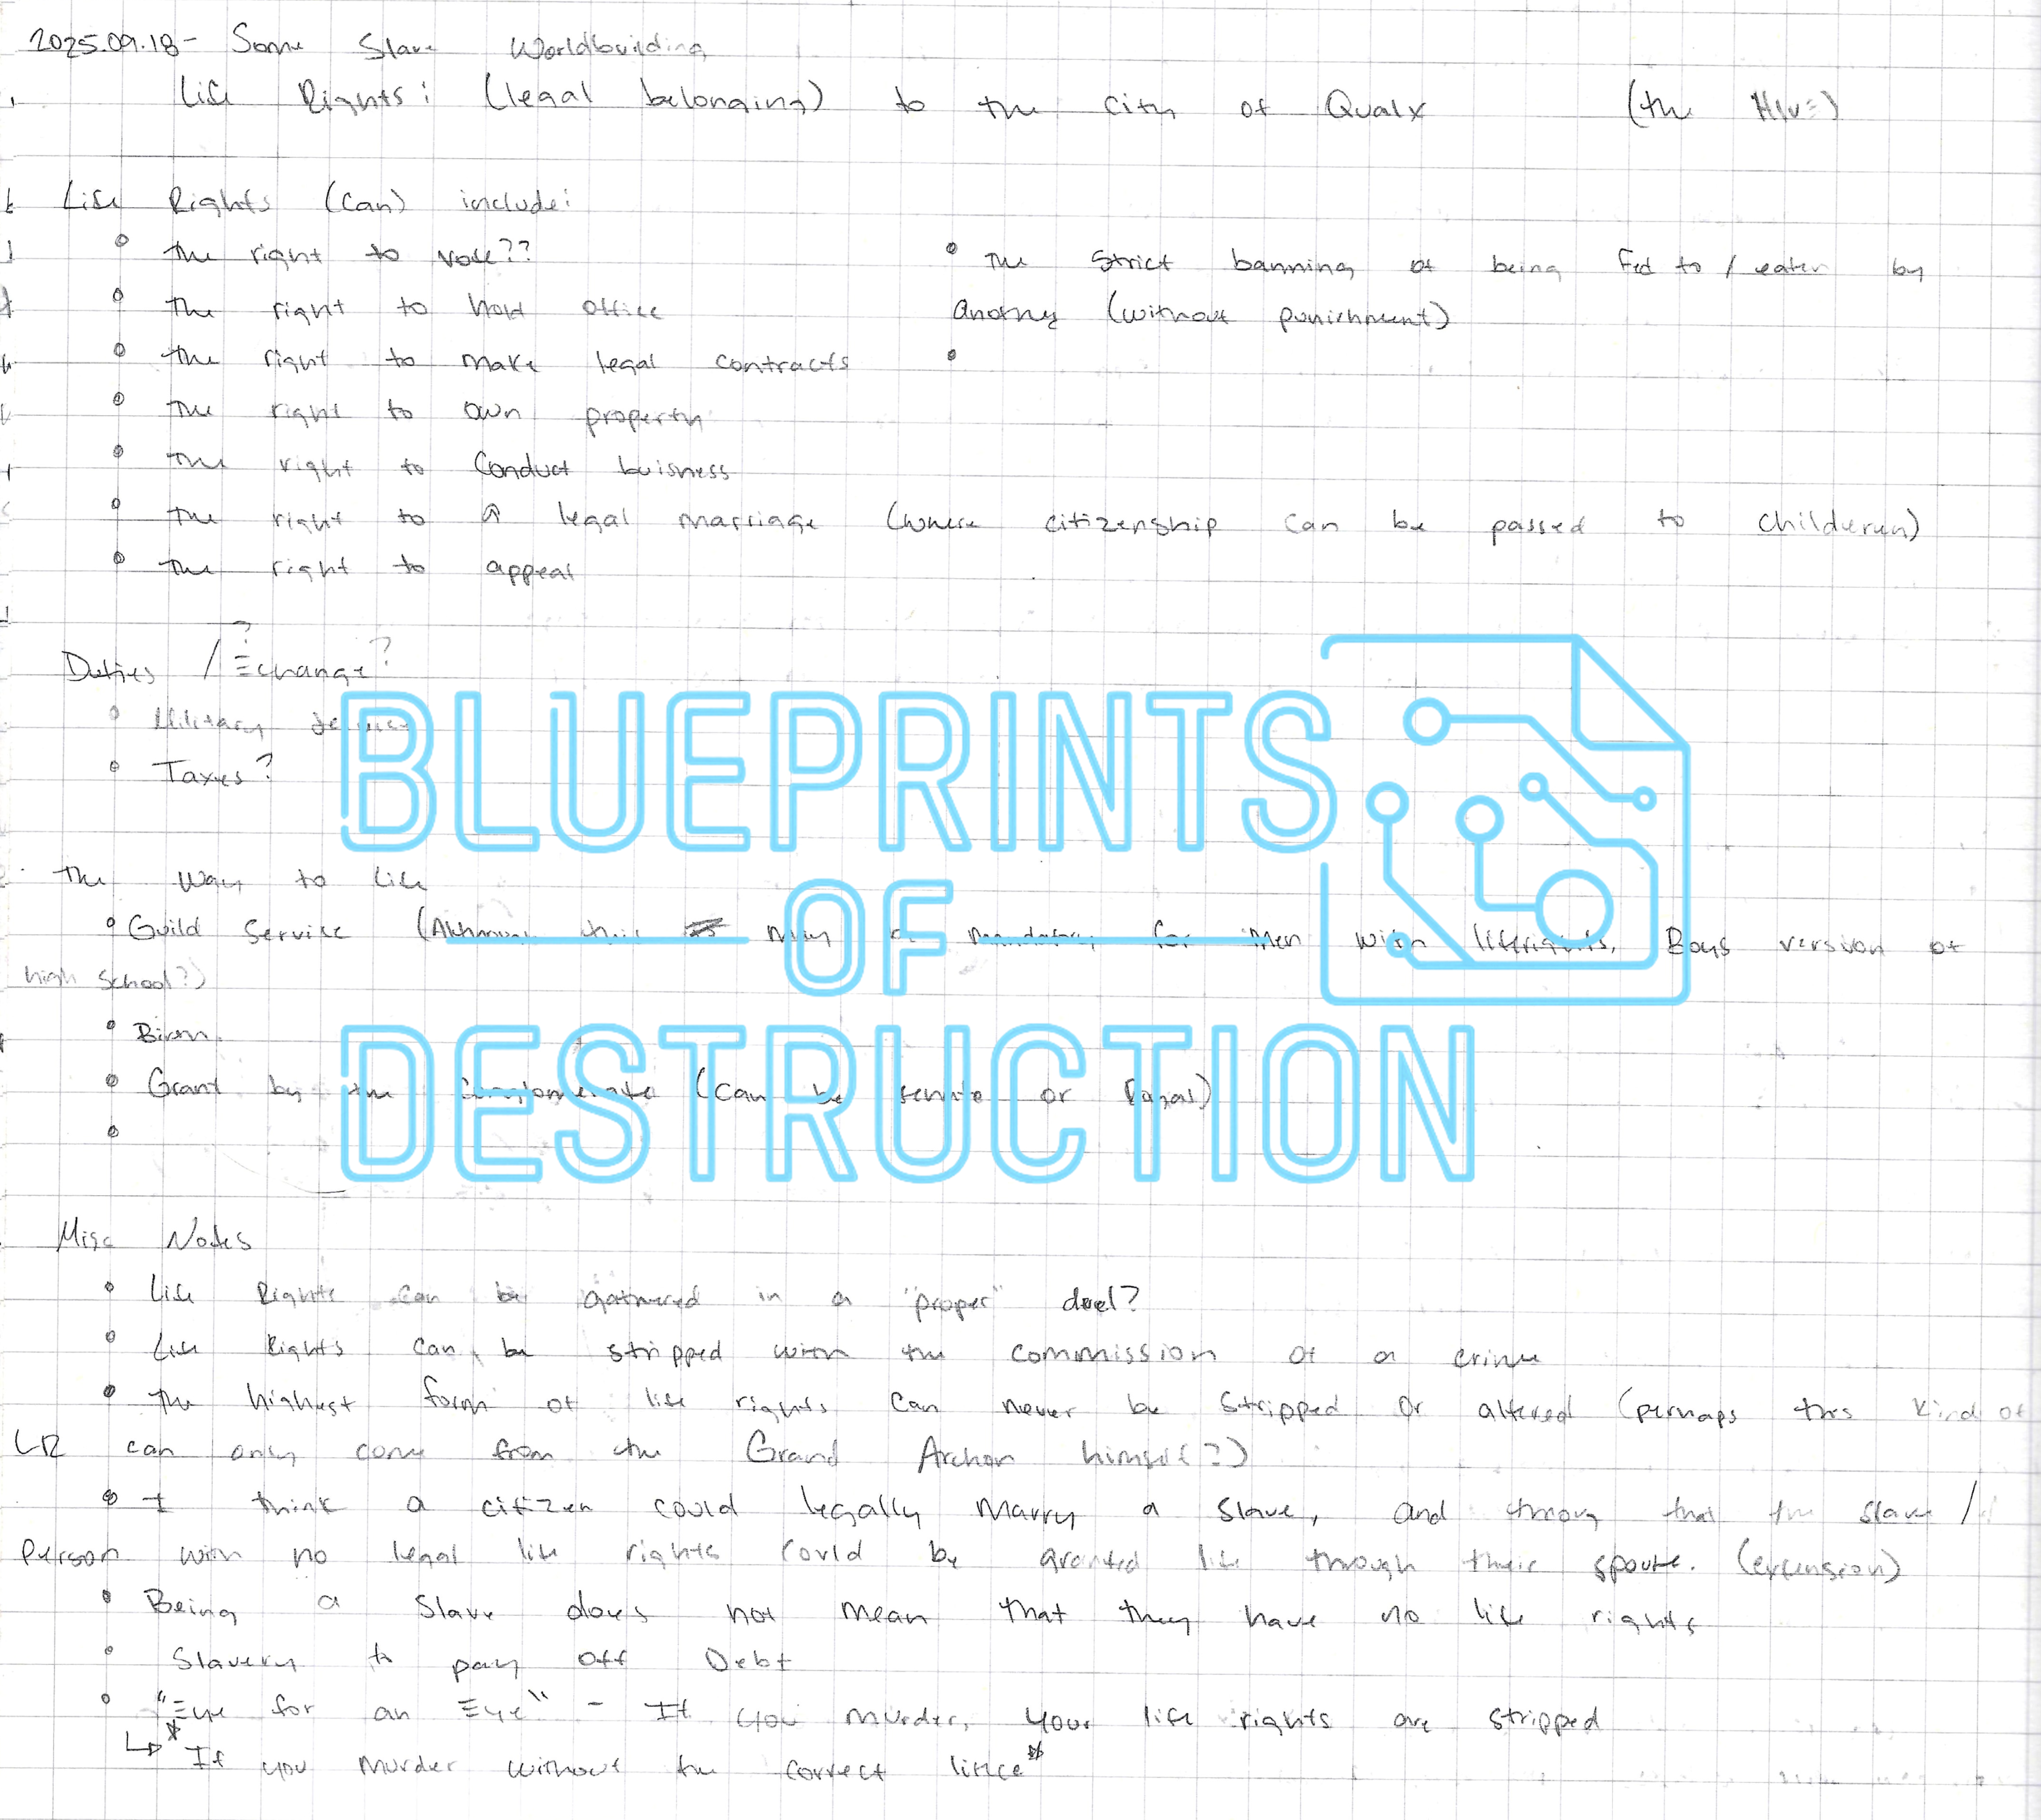 2025.09.18 - Some Slave Worldbuilding
Life Rights: (legal belonging) to the city of Qualx (the Hive)
Life Rights (can) include:
• The right to vote??
• The right to hold office
• The right to make legal contracts
• The right to own property
• The right to conduct buisness
• The right to a legal marriage (where citizenship can be passed to childeren)
• The right to appeal
• The strict banning of being fed to / eaten by
another (without punishment)
•
Duties / Echange?
• Military service
• Taxes?
The way to life
• Guild Service (Although this may be mandatory for men with liferights. Boys version of
high school?)
• Birth
• Grant by the Conglomerate (can be senate or Royal)
•
BLUEPRINTS
OF
DESTRUCTION
Misc Notes
• Life Rights can be gathered in a "proper" duel?
• Life Rights can be stripped with the commission of a crime
• The highest form of life rights can never be stripped or altered (perhaps this kind of
LR can only come from the Grand Archon himself?)
• I think a citizen could legally marry a slave, and throug that the slave /
person with no legal life rights could be granted life through their spouse. (extension)
• Being a slave does not mean that they have no life rights
• Slavery to pay off Debt
• "Eye for an Eye" - If you murder, your life rights are stripped
↳ *If you murder without the correct lince*